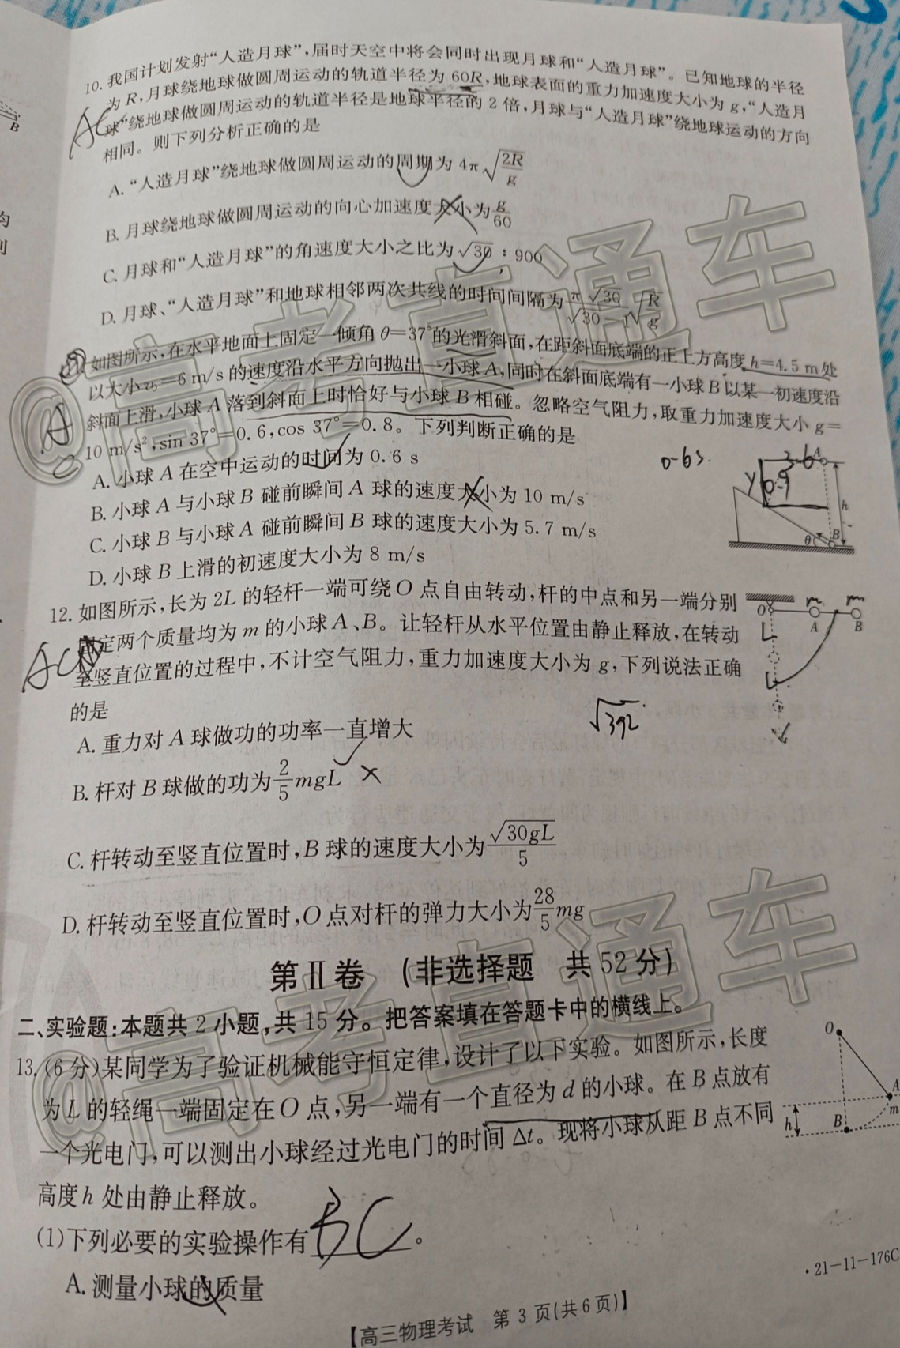 10. 我国计划发射“人造月球”,届时天空中将会同时出现月球和“人造月球”。已知地球的半径
为 R,月球绕地球做圆周运动的轨道半径为 60R,地球表面的重力加速度大小为 g,“人造月
球”绕地球做圆周运动的轨道半径是地球半径的 2 倍,月球与“人造月球”绕地球运动的方向
相同。则下列分析正确的是
AC
A. “人造月球”绕地球做圆周运动的周期为 4π√(2R/g)
B. 月球绕地球做圆周运动的向心加速度大小为 g/60
C. 月球和“人造月球”的角速度大小之比为 √30 : 900
D. 月球、“人造月球”和地球相邻两次共线的时间间隔为
如图所示,在水平地面上固定一倾角 θ=37°的光滑斜面,在距斜面底端的正上方高度 h=4.5 m 处
以大小 v₀=6 m/s 的速度沿水平方向抛出一小球 A,同时在斜面底端有一小球 B 以某一初速度沿
斜面上滑,小球 A 落到斜面上时恰好与小球 B 相碰。忽略空气阻力,取重力加速度大小 g=
10 m/s²,sin 37°=0.6,cos 37°=0.8。下列判断正确的是
A. 小球 A 在空中运动的时间为 0.6 s
B. 小球 A 与小球 B 碰前瞬间 A 球的速度大小为 10 m/s
C. 小球 B 与小球 A 碰前瞬间 B 球的速度大小为 5.7 m/s
D. 小球 B 上滑的初速度大小为 8 m/s
0.6s
3.6
0.9
A
h
θ
B
12. 如图所示,长为 2L 的轻杆一端可绕 O 点自由转动,杆的中点和另一端分别
固定两个质量均为 m 的小球 A、B。让轻杆从水平位置由静止释放,在转动
至竖直位置的过程中,不计空气阻力,重力加速度大小为 g,下列说法正确
的是
O
A
B
A. 重力对 A 球做功的功率一直增大
B. 杆对 B 球做的功为 2/5 mgL
C. 杆转动至竖直位置时,B 球的速度大小为 √(30gL)/5
D. 杆转动至竖直位置时,O 点对杆的弹力大小为 28/5 mg
第Ⅱ卷 (非选择题 共 52 分)
二、实验题:本题共 2 小题,共 15 分。把答案填在答题卡中的横线上。
13. (6 分)某同学为了验证机械能守恒定律,设计了以下实验。如图所示,长度
为 L 的轻绳一端固定在 O 点,另一端有一个直径为 d 的小球。在 B 点放有
一个光电门,可以测出小球经过光电门的时间 Δt。现将小球从距 B 点不同
高度 h 处由静止释放。
O
A
m
h
B
(1)下列必要的实验操作有 BC 。
A. 测量小球的质量
·21-11-176C
【高三物理考试 第 3 页(共 6 页)】
@高考直通车
@高考直通车